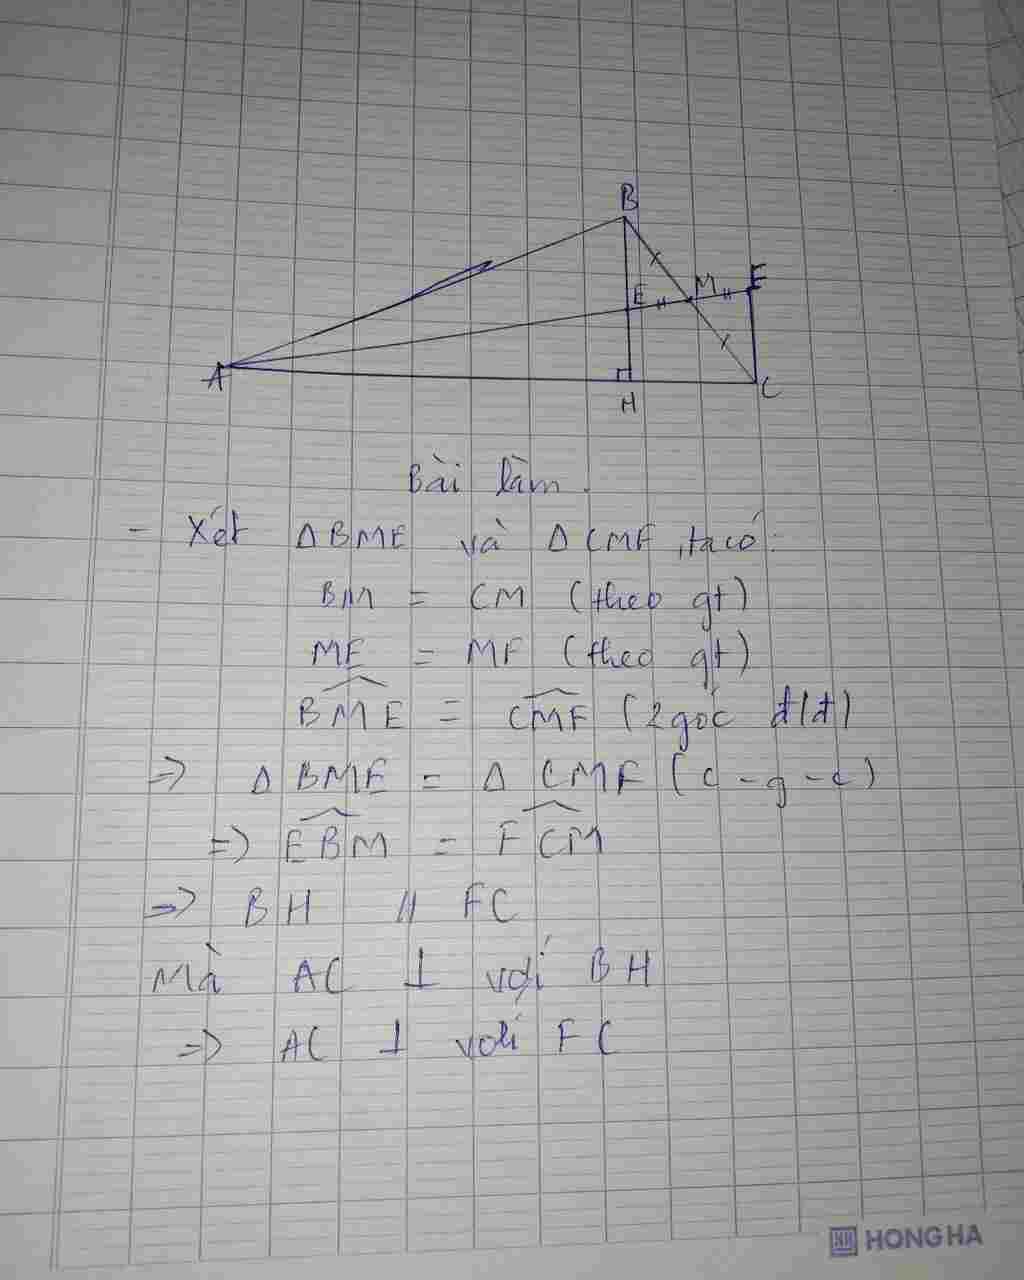 B
E M F
A H C
Bài làm.
- Xét Δ BME và Δ CMF, ta có:
BM = CM (theo gt)
ME = MF (theo gt)
BME = CMF (2 góc đ/đ)
=> Δ BME = Δ CMF (c - g - c)
=> EBM = FCM
=> BH // FC
Mà AC ⊥ với BH
=> AC ⊥ với FC
HH HONG HA